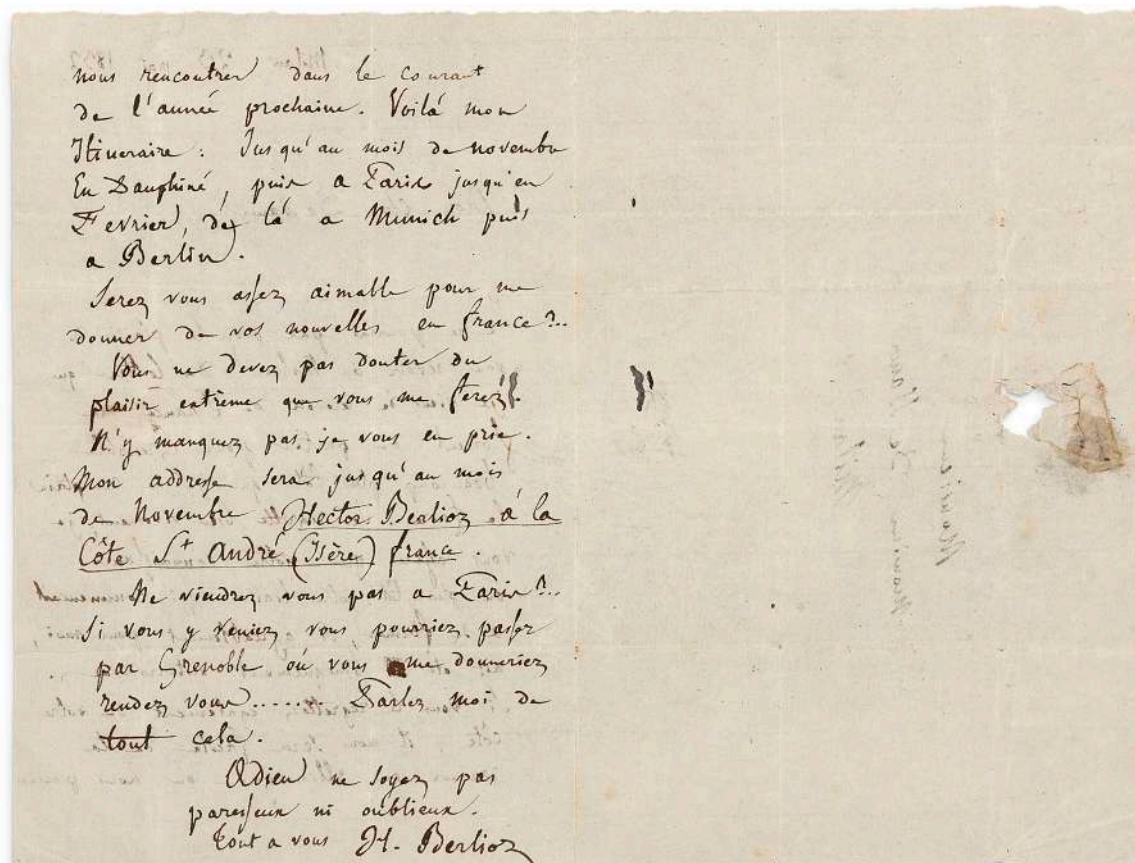 nous rencontrer dans le courant
de l'année prochaine. Voilà mon
Itineraire : Jusqu'au mois de novembre
En Dauphiné, puis a Paris jusqu'en
Fevrier, de là a Munich puis
a Berlin.
Serez vous assez aimable pour me
donner de vos nouvelles en france?..
Vous ne devez pas douter du
plaisir extrême que vous me ferez.
N'y manquez pas je vous en prie.
Mon addresse sera jusqu'au mois
de Novembre Hector Berlioz à la
Côte St André (Isère) france.
Ne viendrez vous pas a Paris?..
Si vous y veniez vous pourriez passer
par Grenoble où vous me donneriez
rendez vous....... Parlez moi de
tout cela.
Adieu ne soyez pas
paresseux ni oublieux.
Tout a vous H. Berlioz